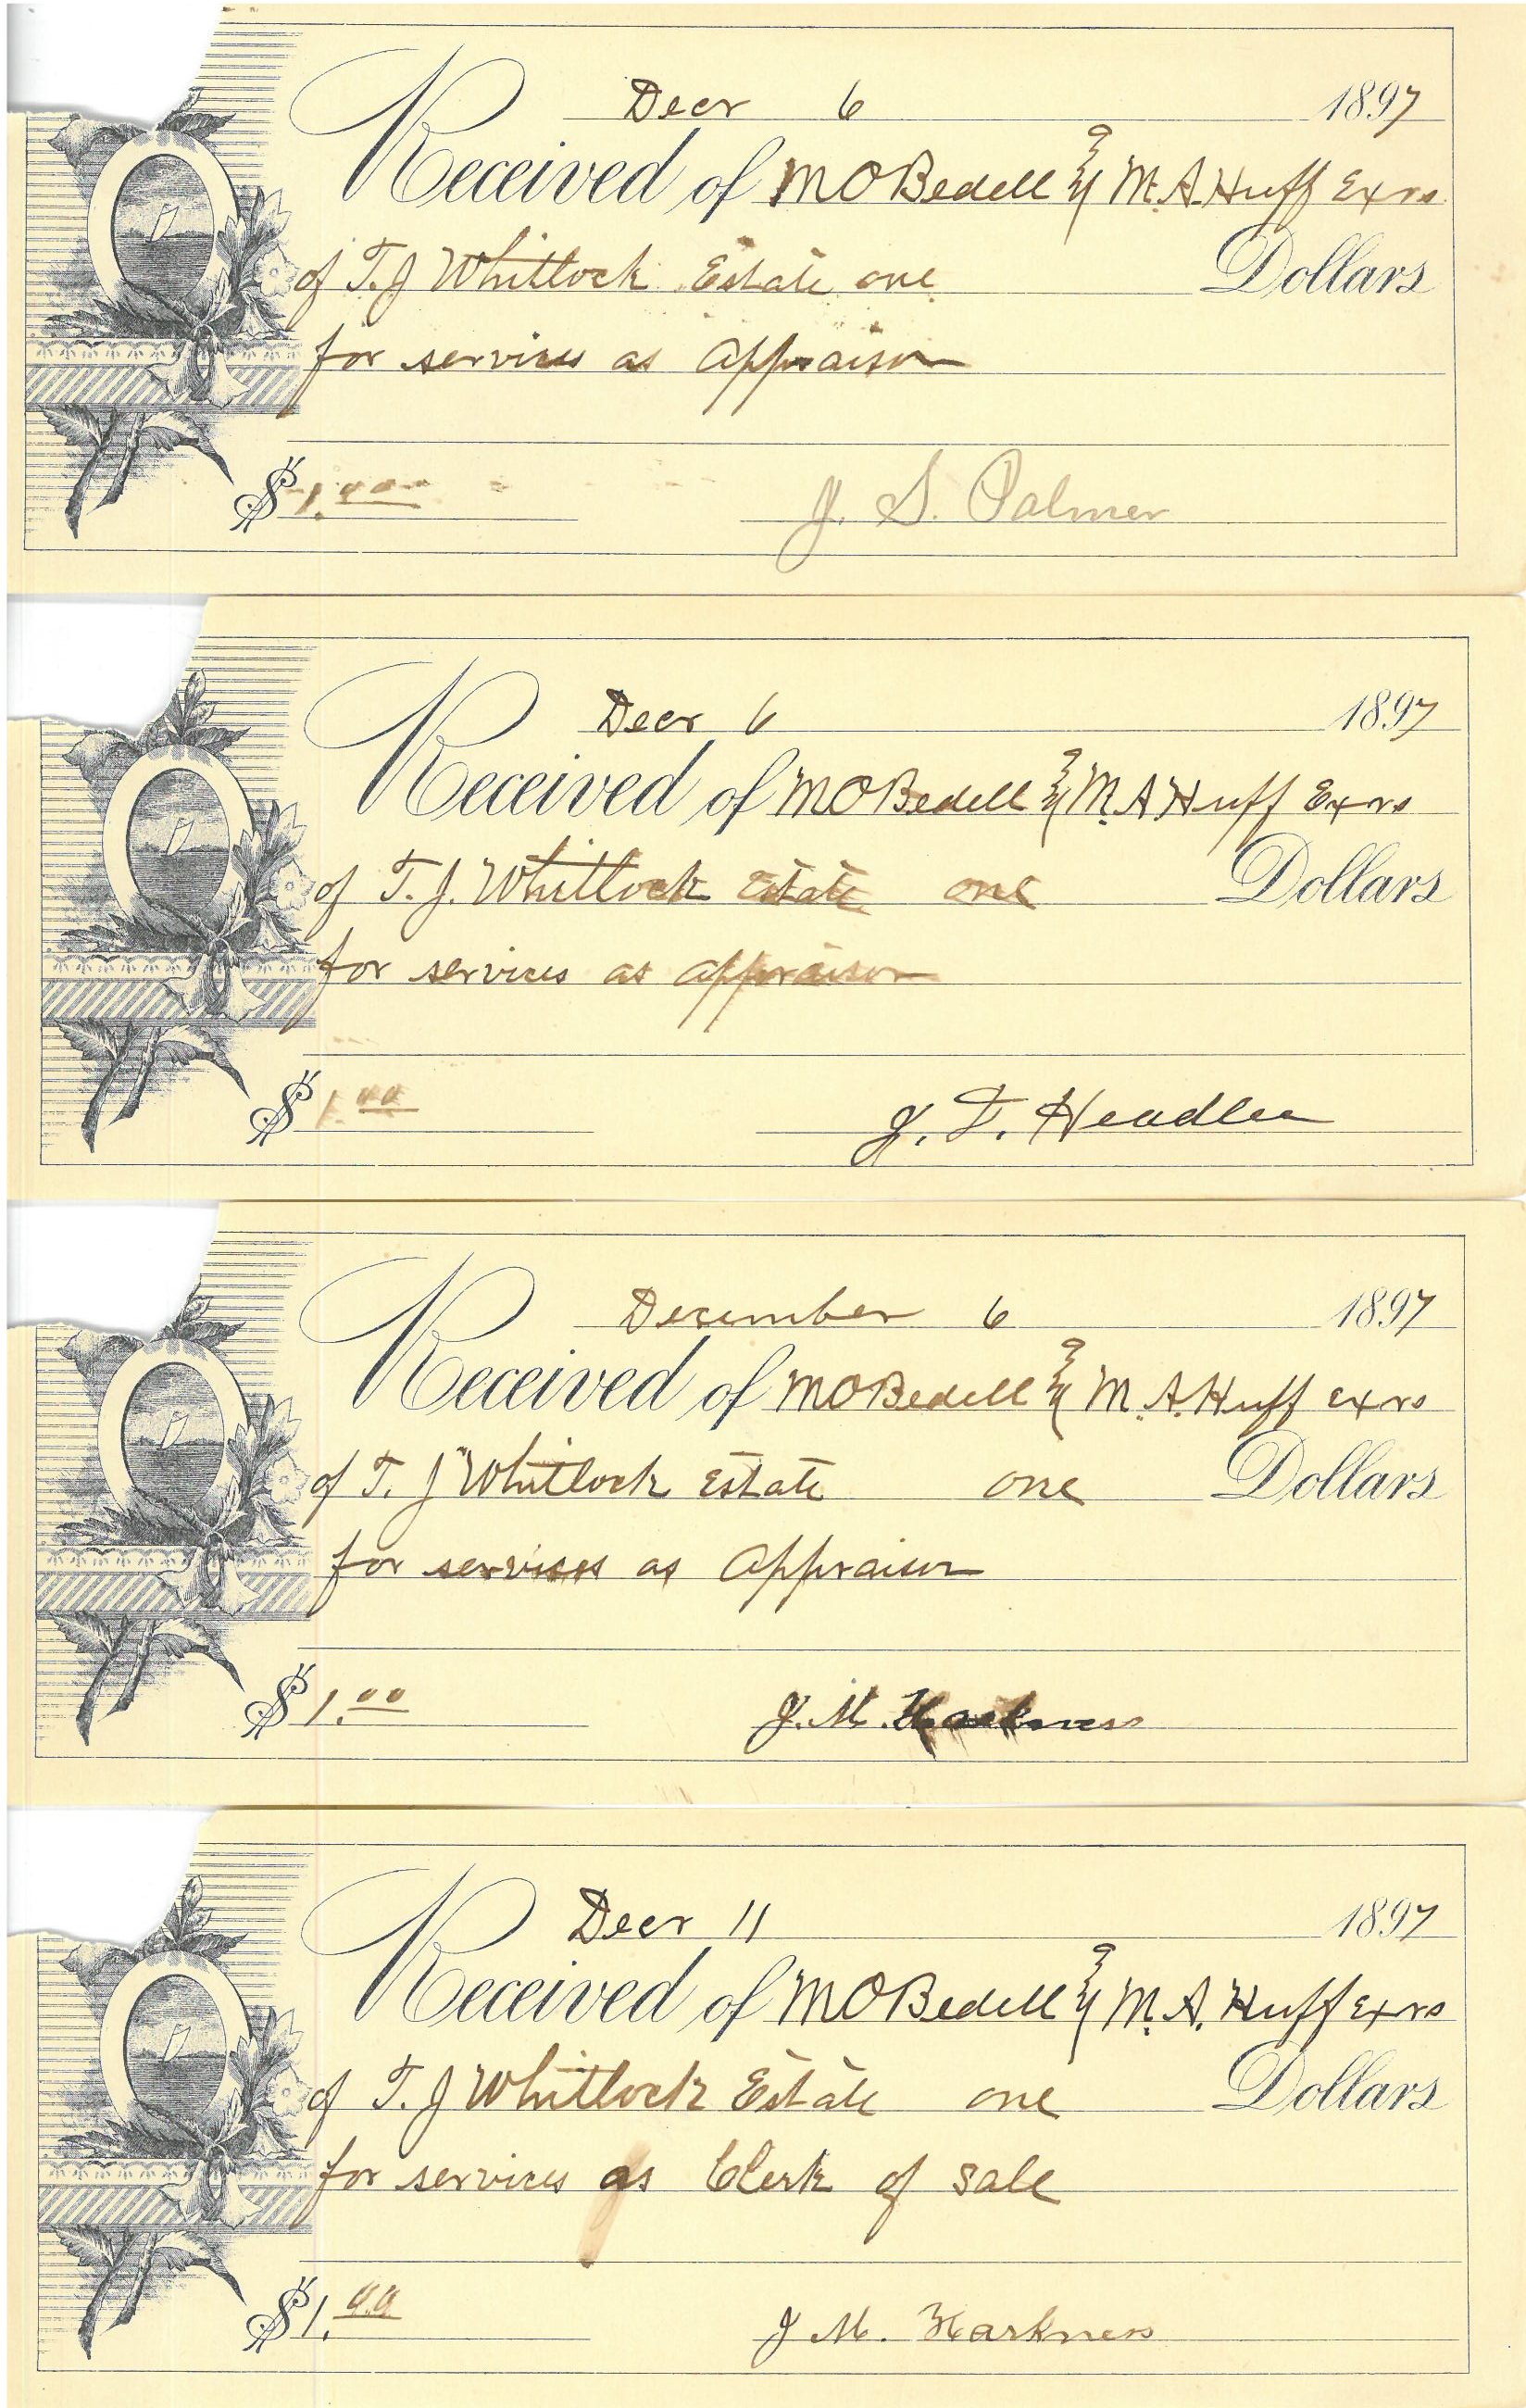 Decr 6 1897
Received of M O Bedell & M. A. Huff Exrs
of T. J Whitlock Estate one Dollars
for services as Appraisor
$ 1.00 J. S. Palmer
Decr 6 1897
Received of M O Bedell & M. A Huff Exrs
of T. J. Whitlock Estate one Dollars
for services as appraisor
$ 1.00 J. T. Headlee
December 6 1897
Received of M O Bedell & M. A. Huff exrs
of T. J Whitlock Estate one Dollars
for services as Appraisor
$ 1.00 J. M. Harkness
Decr 11 1897
Received of M O Bedell & M. A. Huff Exrs
of T. J Whitlock Estate one Dollars
for services as Clerk of sale
$ 1.00 J M. Harkness